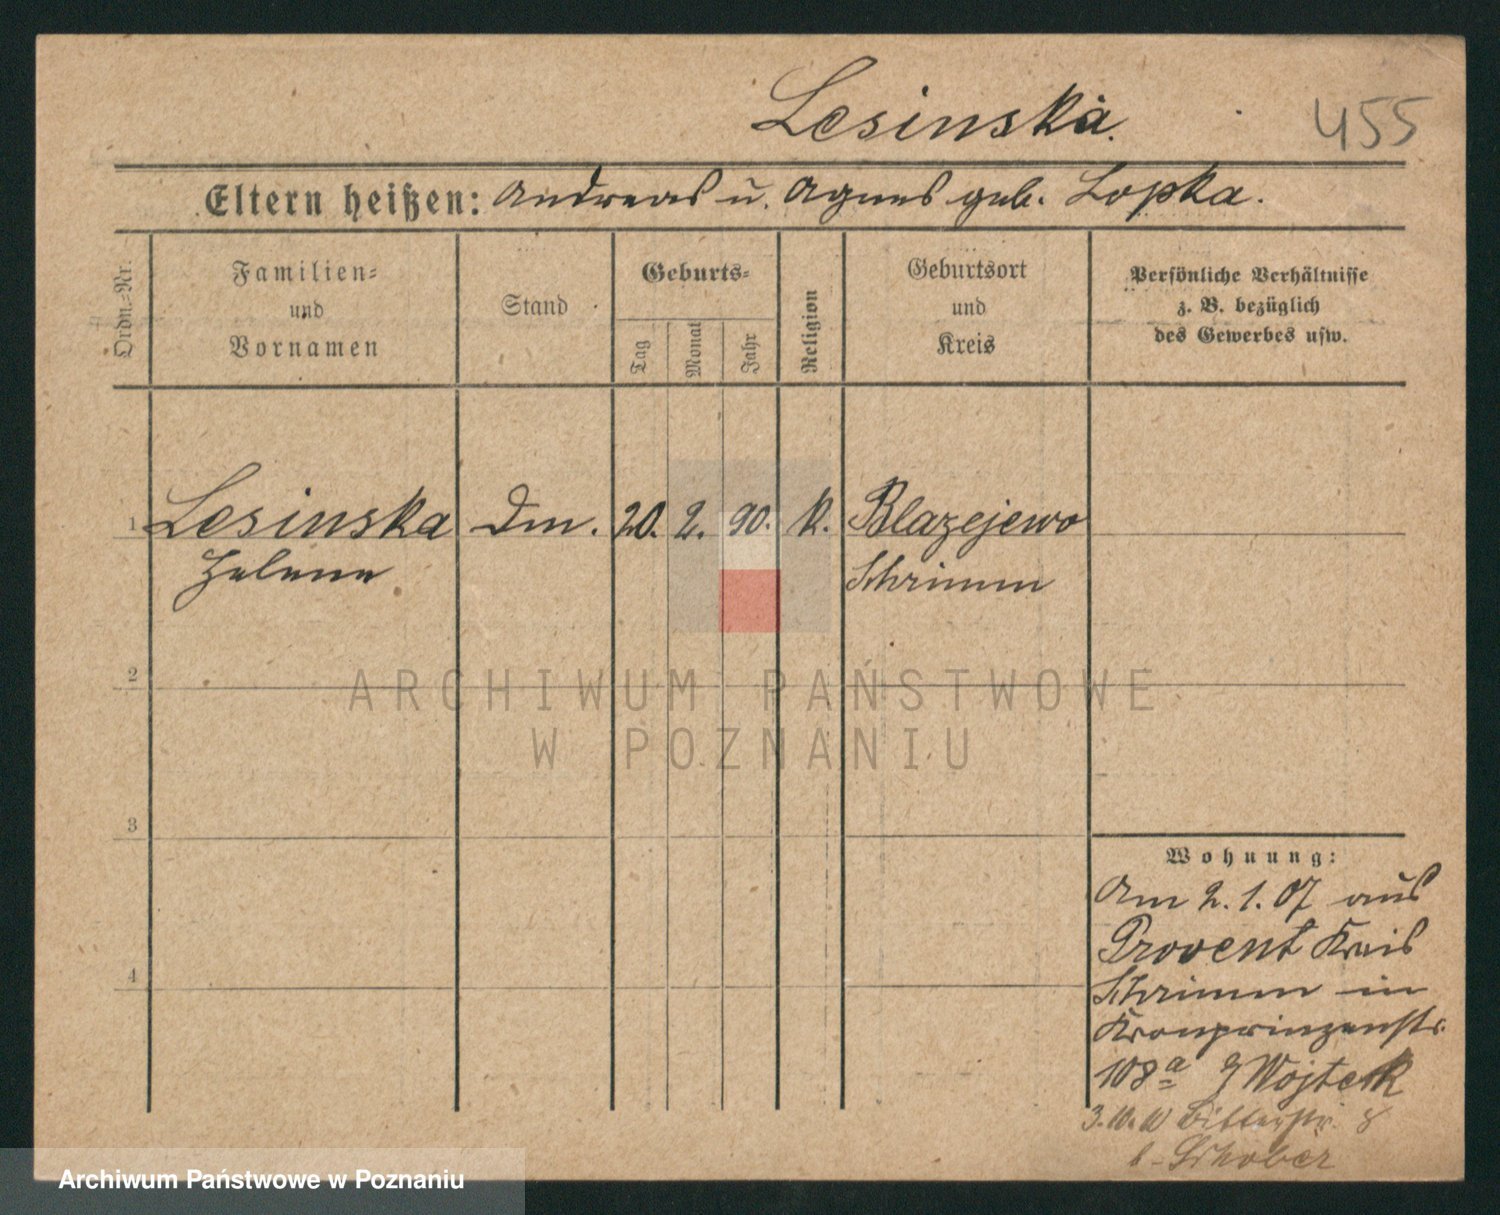 Lesinska.
455
Eltern heißen: Andreas u. Agnes geb. Lopka.
Ordn.=Nr.
Familien=
und
Vornamen
Stand
Geburts=
Tag
Monat
Jahr
Religion
Geburtsort
und
Kreis
Persönliche Verhältnisse
z. B. bezüglich
des Gewerbes usw.
1 Lesinska Dm. 20. 2. 90. k. Blazejewo
Helene Schrimm
2
ARCHIWUM PAŃSTWOWE
W POZNANIU
3
4
Wohnung:
Am 2. 1. 07 aus
Provent Kreis
Schrimm in
Kronprinzenstr.
108a Wojteck
3.10.10 8
b. Schober
Archiwum Państwowe w Poznaniu